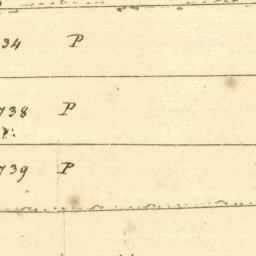 34 P
738 P
739 P